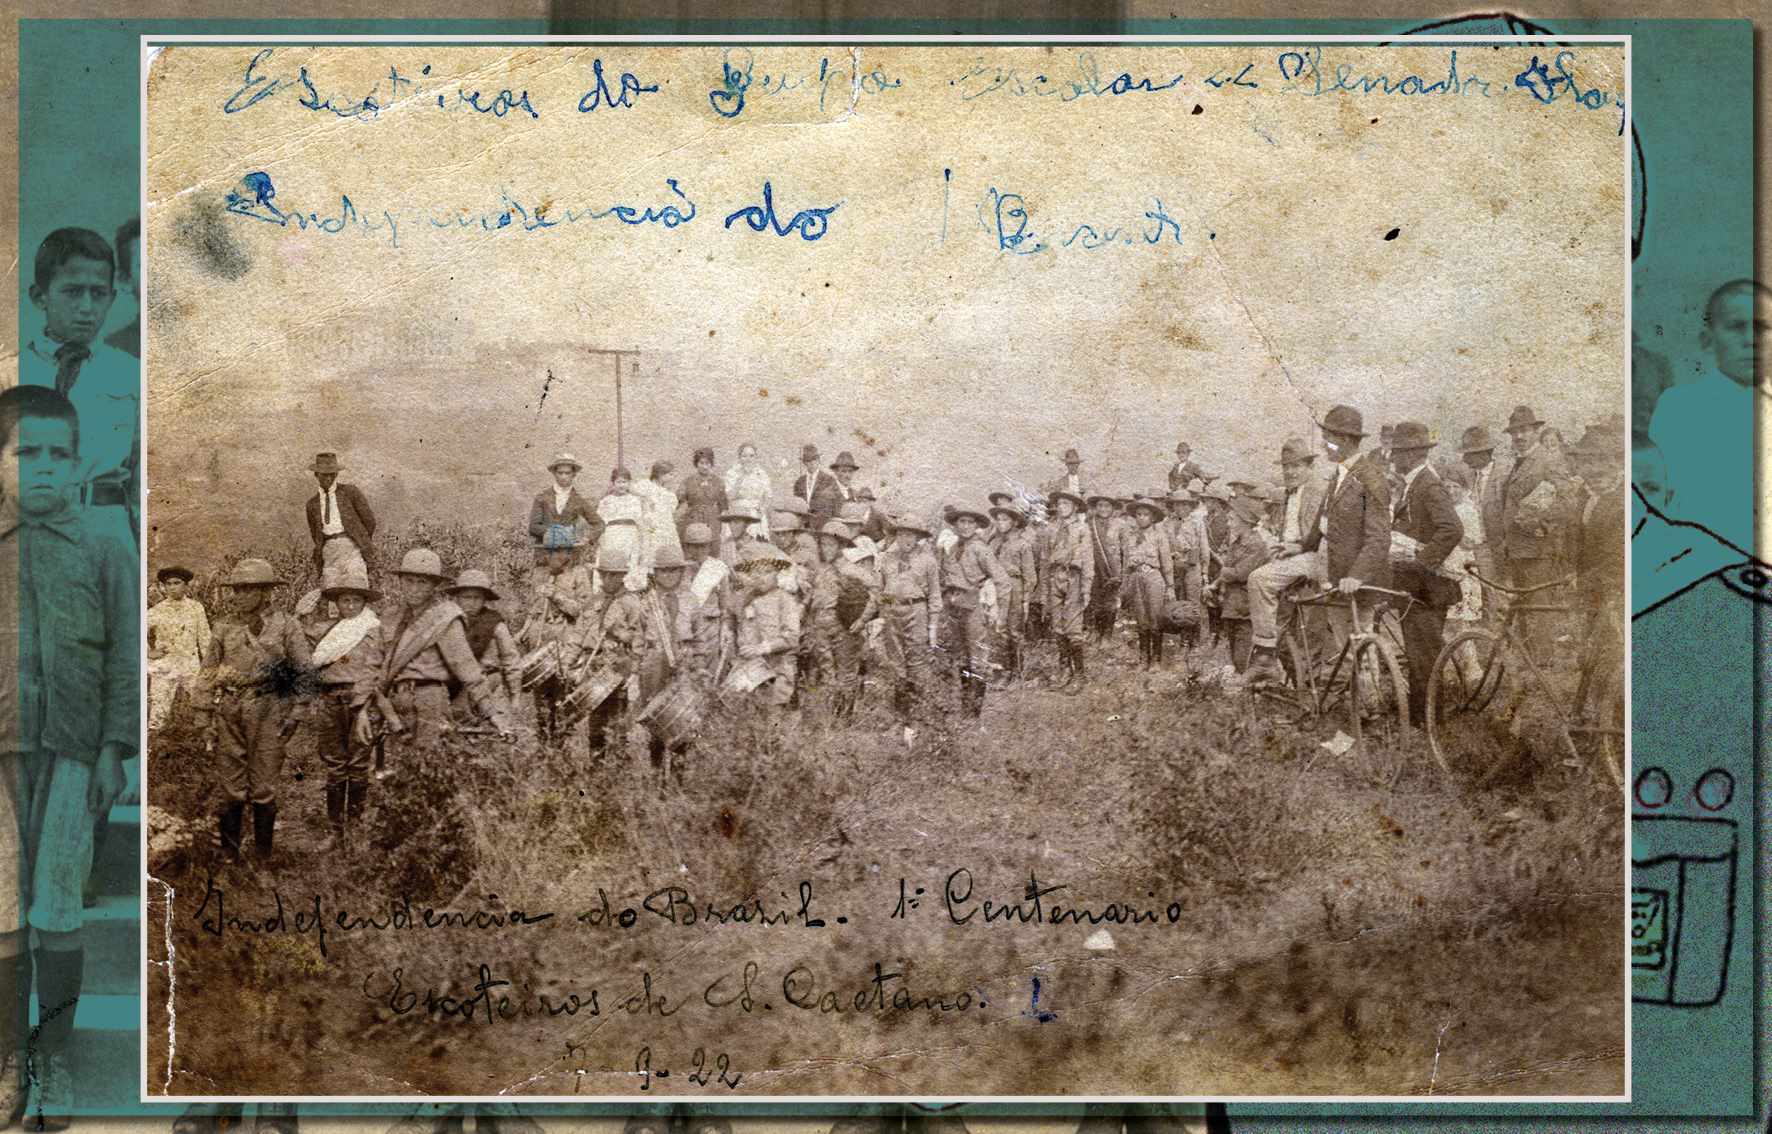 Escoteiros do Grupo Escolar << Senador Fla
Independencia do Brasil.
Independencia do Brazil. 1º Centenario
Escoteiros de S. Caetano.
7-9-22